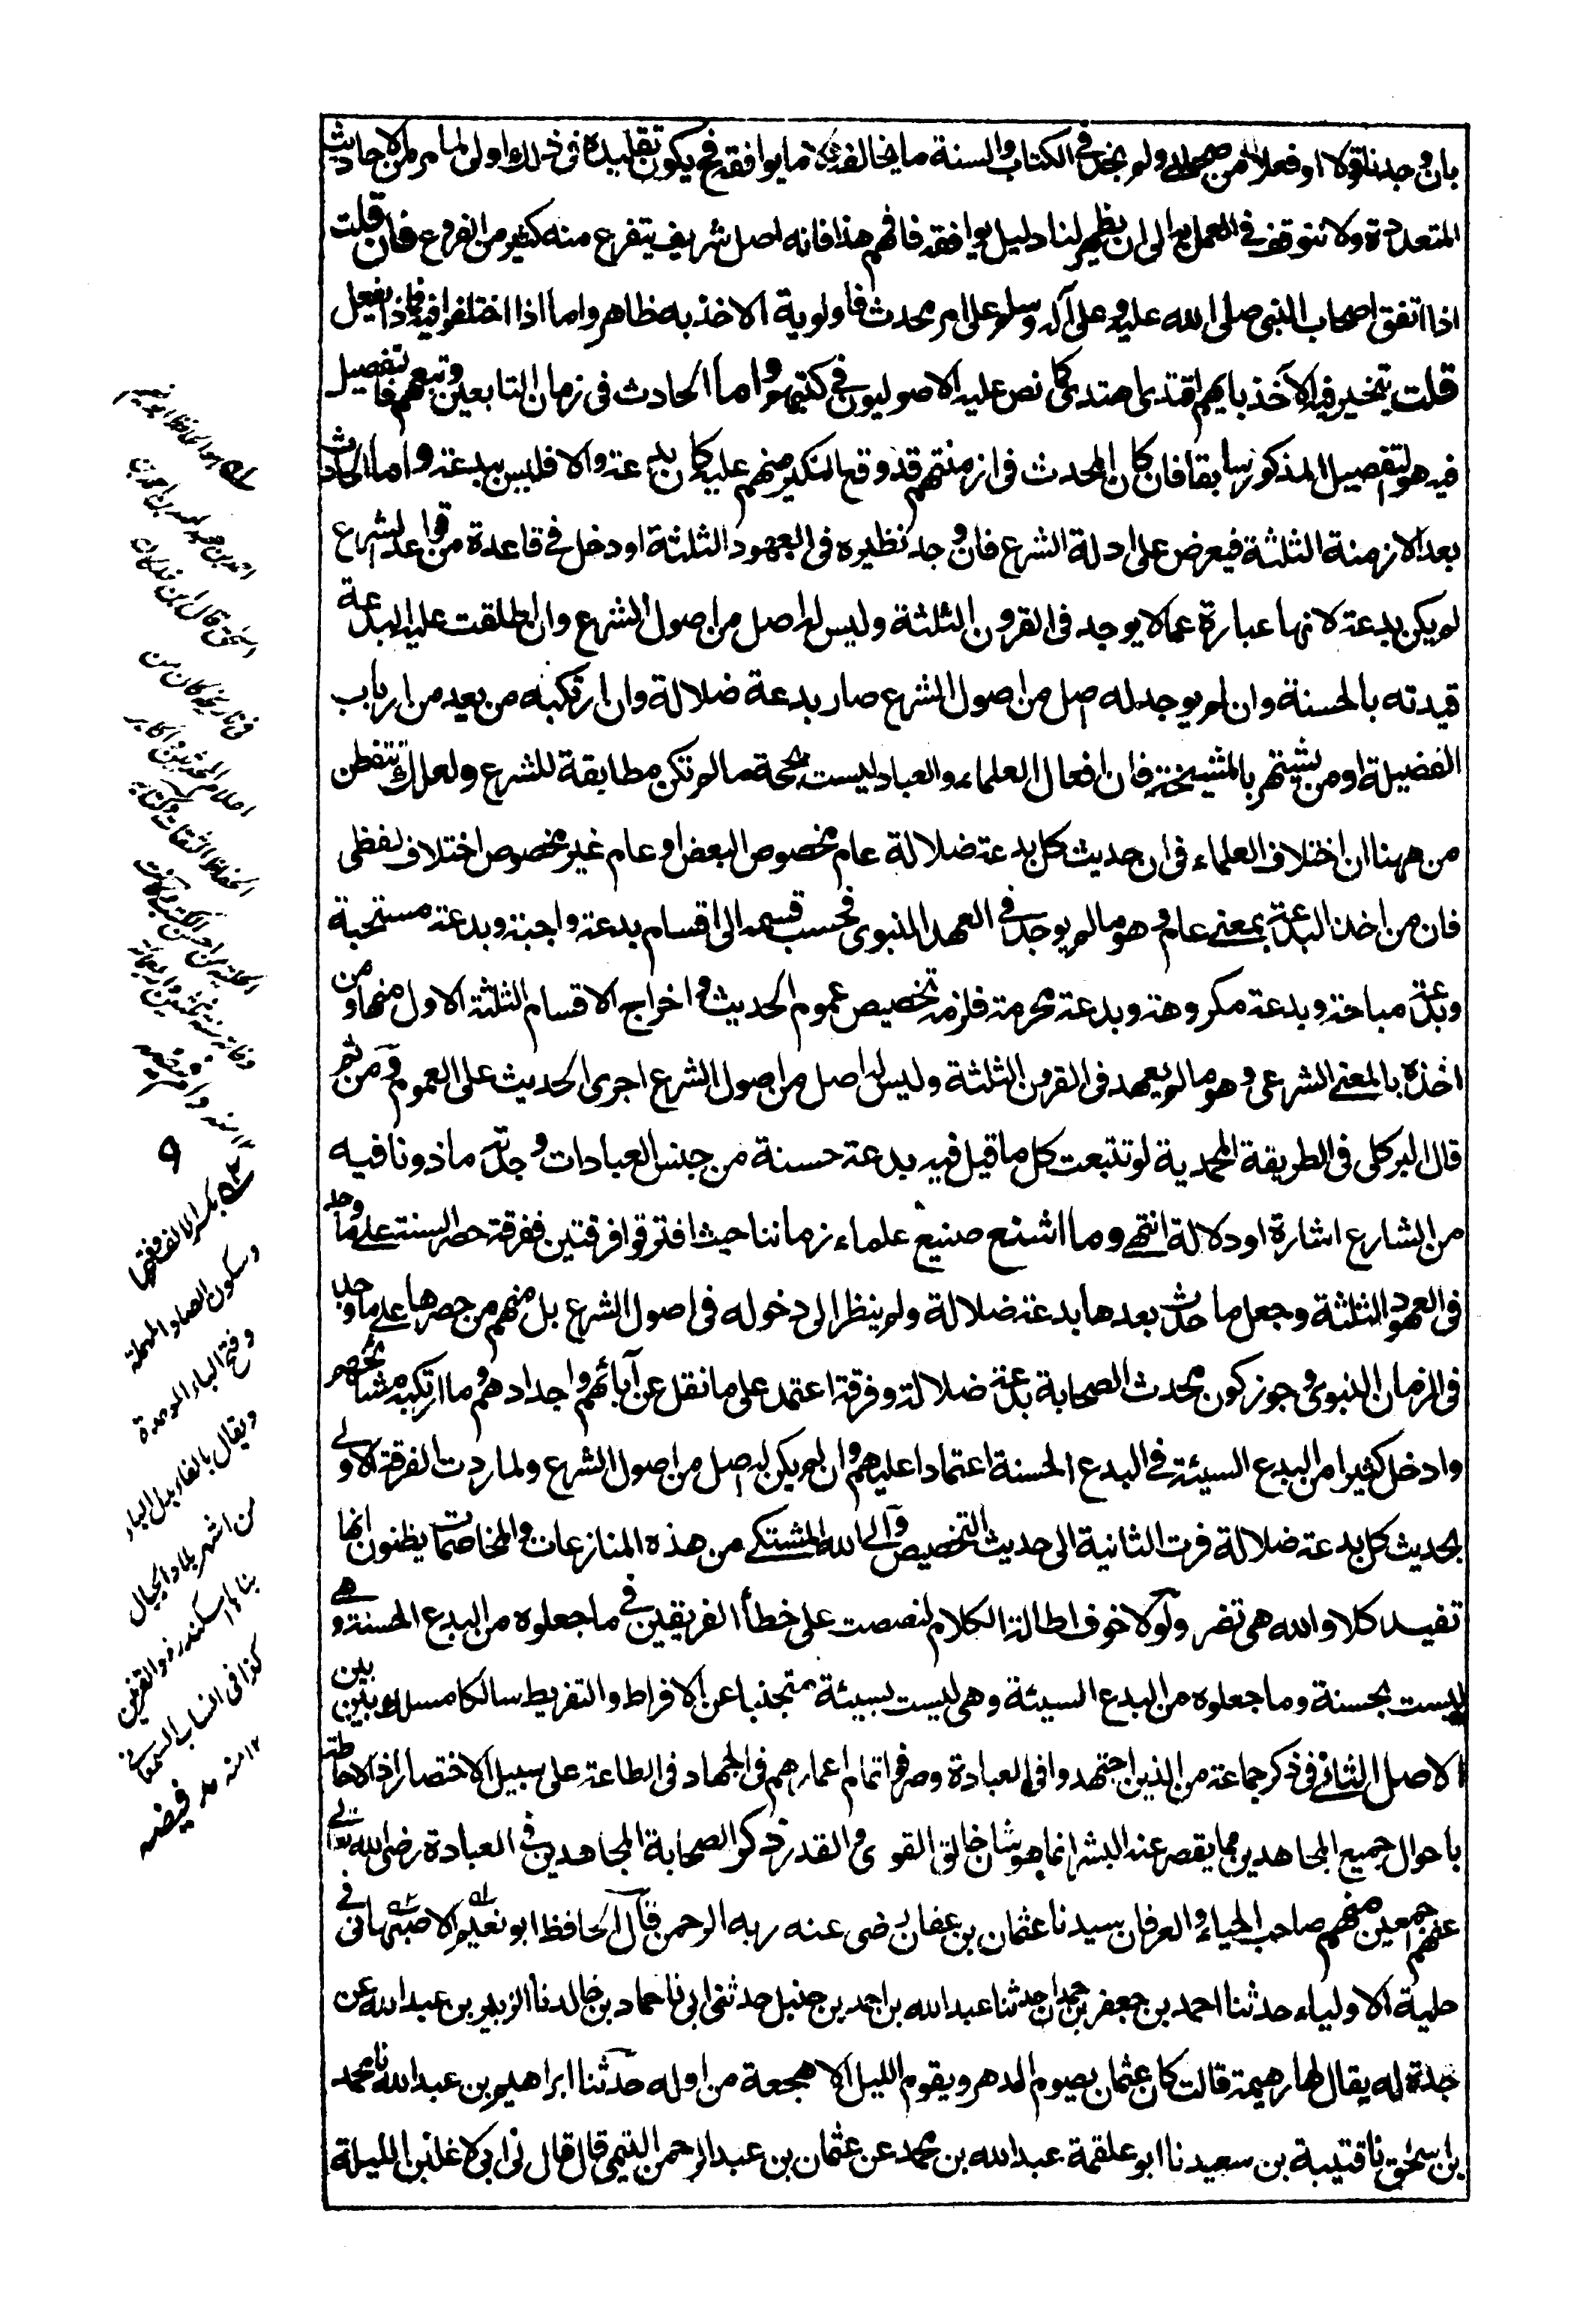 بان وجدنا قولا او فعلا من صحابي ولم نجد في الكتاب والسنة ما يخالفه ولا ما يوافقه فح يكون تقليده في ذلك اولى لما مر من الاحاديث
المتعددة ولا نتوقف في العمل به الى ان يظهر لنا دليل يوافقه فافهم هذا فانه اصل شريف يتفرع منه كثير من الفروع فان قلت
اذا اتفق اصحاب النبي صلى الله عليه وعلى آله وسلم على امر محدث فاولوية الاخذ به ظاهر واما اذا اختلفوا فيه فماذا يفعل
قلت يتخير فيه الآخذ بايهم اقتدى اهتدى كما نص عليه الاصوليون في كتبهم واما الحادث في زمان التابعين وتبعهم فالتفصيل
فيه هو التفصيل المذكور سابقا فان كان المحدث في ازمنتهم قد وقع النكير منهم عليه كان بدعة والا فليس ببدعة واما الحادث
بعد الازمنة الثلثة فيعرض على ادلة الشرع فان وجد نظيره في العهود الثلثة او دخل في قاعدة من قواعد الشرع
لم يكن بدعة لانها عبارة عما لا يوجد في القرون الثلثة وليس له اصل من اصول الشرع وان اطلقت عليه البدعة
قيدته بالحسنة وان لم يوجد له اصل من اصول الشرع صار بدعة ضلالة وان ارتكبه من يعد من ارباب
الفضيلة او من يشتهر بالمشيخة فان افعال العلماء والعباد ليست بحجة ما لم تكن مطابقة للشرع ولعلك تتفطن
من ههنا ان اختلاف العلماء في ان حديث كل بدعة ضلالة عام مخصوص البعض او عام غير مخصوص اختلاف لفظي
فان من اخذ البدعة بمعنى عام وهو ما لم يوجد في العهد النبوي فحسب قسمه الى اقسام بدعة واجبة وبدعة مستحبة
وبدعة مباحة وبدعة مكروهة وبدعة محرمة فلزمه تخصيص عموم الحديث واخراج الاقسام الثلثة الاول منها ومن
اخذه بالمعنى الشرعي وهو ما لم يعهد في القرون الثلثة وليس له اصل من اصول الشرع اجرى الحديث على العموم ومن ثم
قال البركلي في الطريقة المحمدية لو تتبعت كل ما قيل فيه بدعة حسنة من جنس العبادات وجدته ماذونا فيه
من الشارع اشارة او دلالة انتهى وما اشنع صنيع علماء زماننا حيث افترقوا فرقتين ففرقة حصر السنة على ما وجد
في العهود الثلثة وجعل ما حدث بعدها بدعة ضلالة ولم ينظر الى دخوله في اصول الشرع بل منهم من حصرها على ما وجد
في الزمان النبوي وجوز كون محدث الصحابة بدعة ضلالة وفرقة اعتمد على ما نقل عن آبائهم واجدادهم وما ارتكبه مشائخهم
وادخل كثيرا من البدع السيئة في البدع الحسنة اعتمادا عليهم وان لم يكن له اصل من اصول الشرع ولما ردت الفرقة الاولى
بحديث كل بدعة ضلالة فرت الثانية الى حديث التخصيص والى الله المشتكى من هذه المنازعات والمخاصمات يظنون انها
تفيد كلا والله هي تضر ولولا خوف اطالة الكلام لنصصت على خطأ الفريقين في ما جعلوه من البدع الحسنة وهي
ليست بحسنة وما جعلوه من البدع السيئة وهي ليست بسيئة متجنبا عن الافراط والتفريط سالكا مسلك بين بين
الاصل الثاني في ذكر جماعة من الذين اجتهدوا في العبادة وصرفوا تمام اعمارهم في الجهاد في الطاعة على سبيل الاختصار اذ الاحاطة
باحوال جميع المجاهدين مما يقصر عنه البشر انما هو شان خالق القوى والقدر ذكر الصحابة المجاهدين في العبادة رضي الله تعالى
عنهم اجمعين منهم صاحب الحياء والعرفان سيدنا عثمان بن عفان رضى عنه ربه الرحمن قال الحافظ ابو نعيم الاصبهاني في
حلية الاولياء حدثنا احمد بن جعفر بن حمدان حدثنا عبد الله بن احمد بن حنبل حدثني ابي نا حماد بن خالد نا الزبير بن عبد الله عن
جدة له يقال لها رهيمة قالت كان عثمان يصوم الدهر ويقوم الليل الا هجعة من اوله حدثنا ابراهيم بن عبد الله نا محمد
بن اسحق نا قتيبة بن سعيد نا ابو علقمة عبد الله بن محمد عن عثمان بن عبد الرحمن التيمي قال قال لي ابي لاغلبن الليلة
له هو الحافظ ابو نعيم
احمد بن عبد الله بن احمد بن
اسحق قال ابن خلكان
في تاريخه كان من
اعلام المحدثين واكابر
الحفاظ الثقات وكتابه
الحلية من احسن الكتب وكانت
٩
٢ه بكسر الالف وفتحها
وسكون الصاد المهملة
وفتح الباء الموحدة
ويقال بالفاء بدل الباء
من اشهر بلاد الجبال
بناه اسكندر ذو القرنين
كذا في انساب السمعاني
١٢ منه مد فيضه